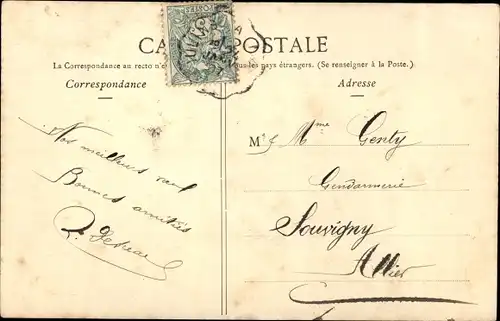 CARTE POSTALE
La Correspondance au recto n'e us les pays étrangers. (Se renseigner à la Poste.)
Correspondance
Adresse
Nos meilleurs
Bonnes amitiés
M et Mme Genty
Gendarmerie
Souvigny
Allier